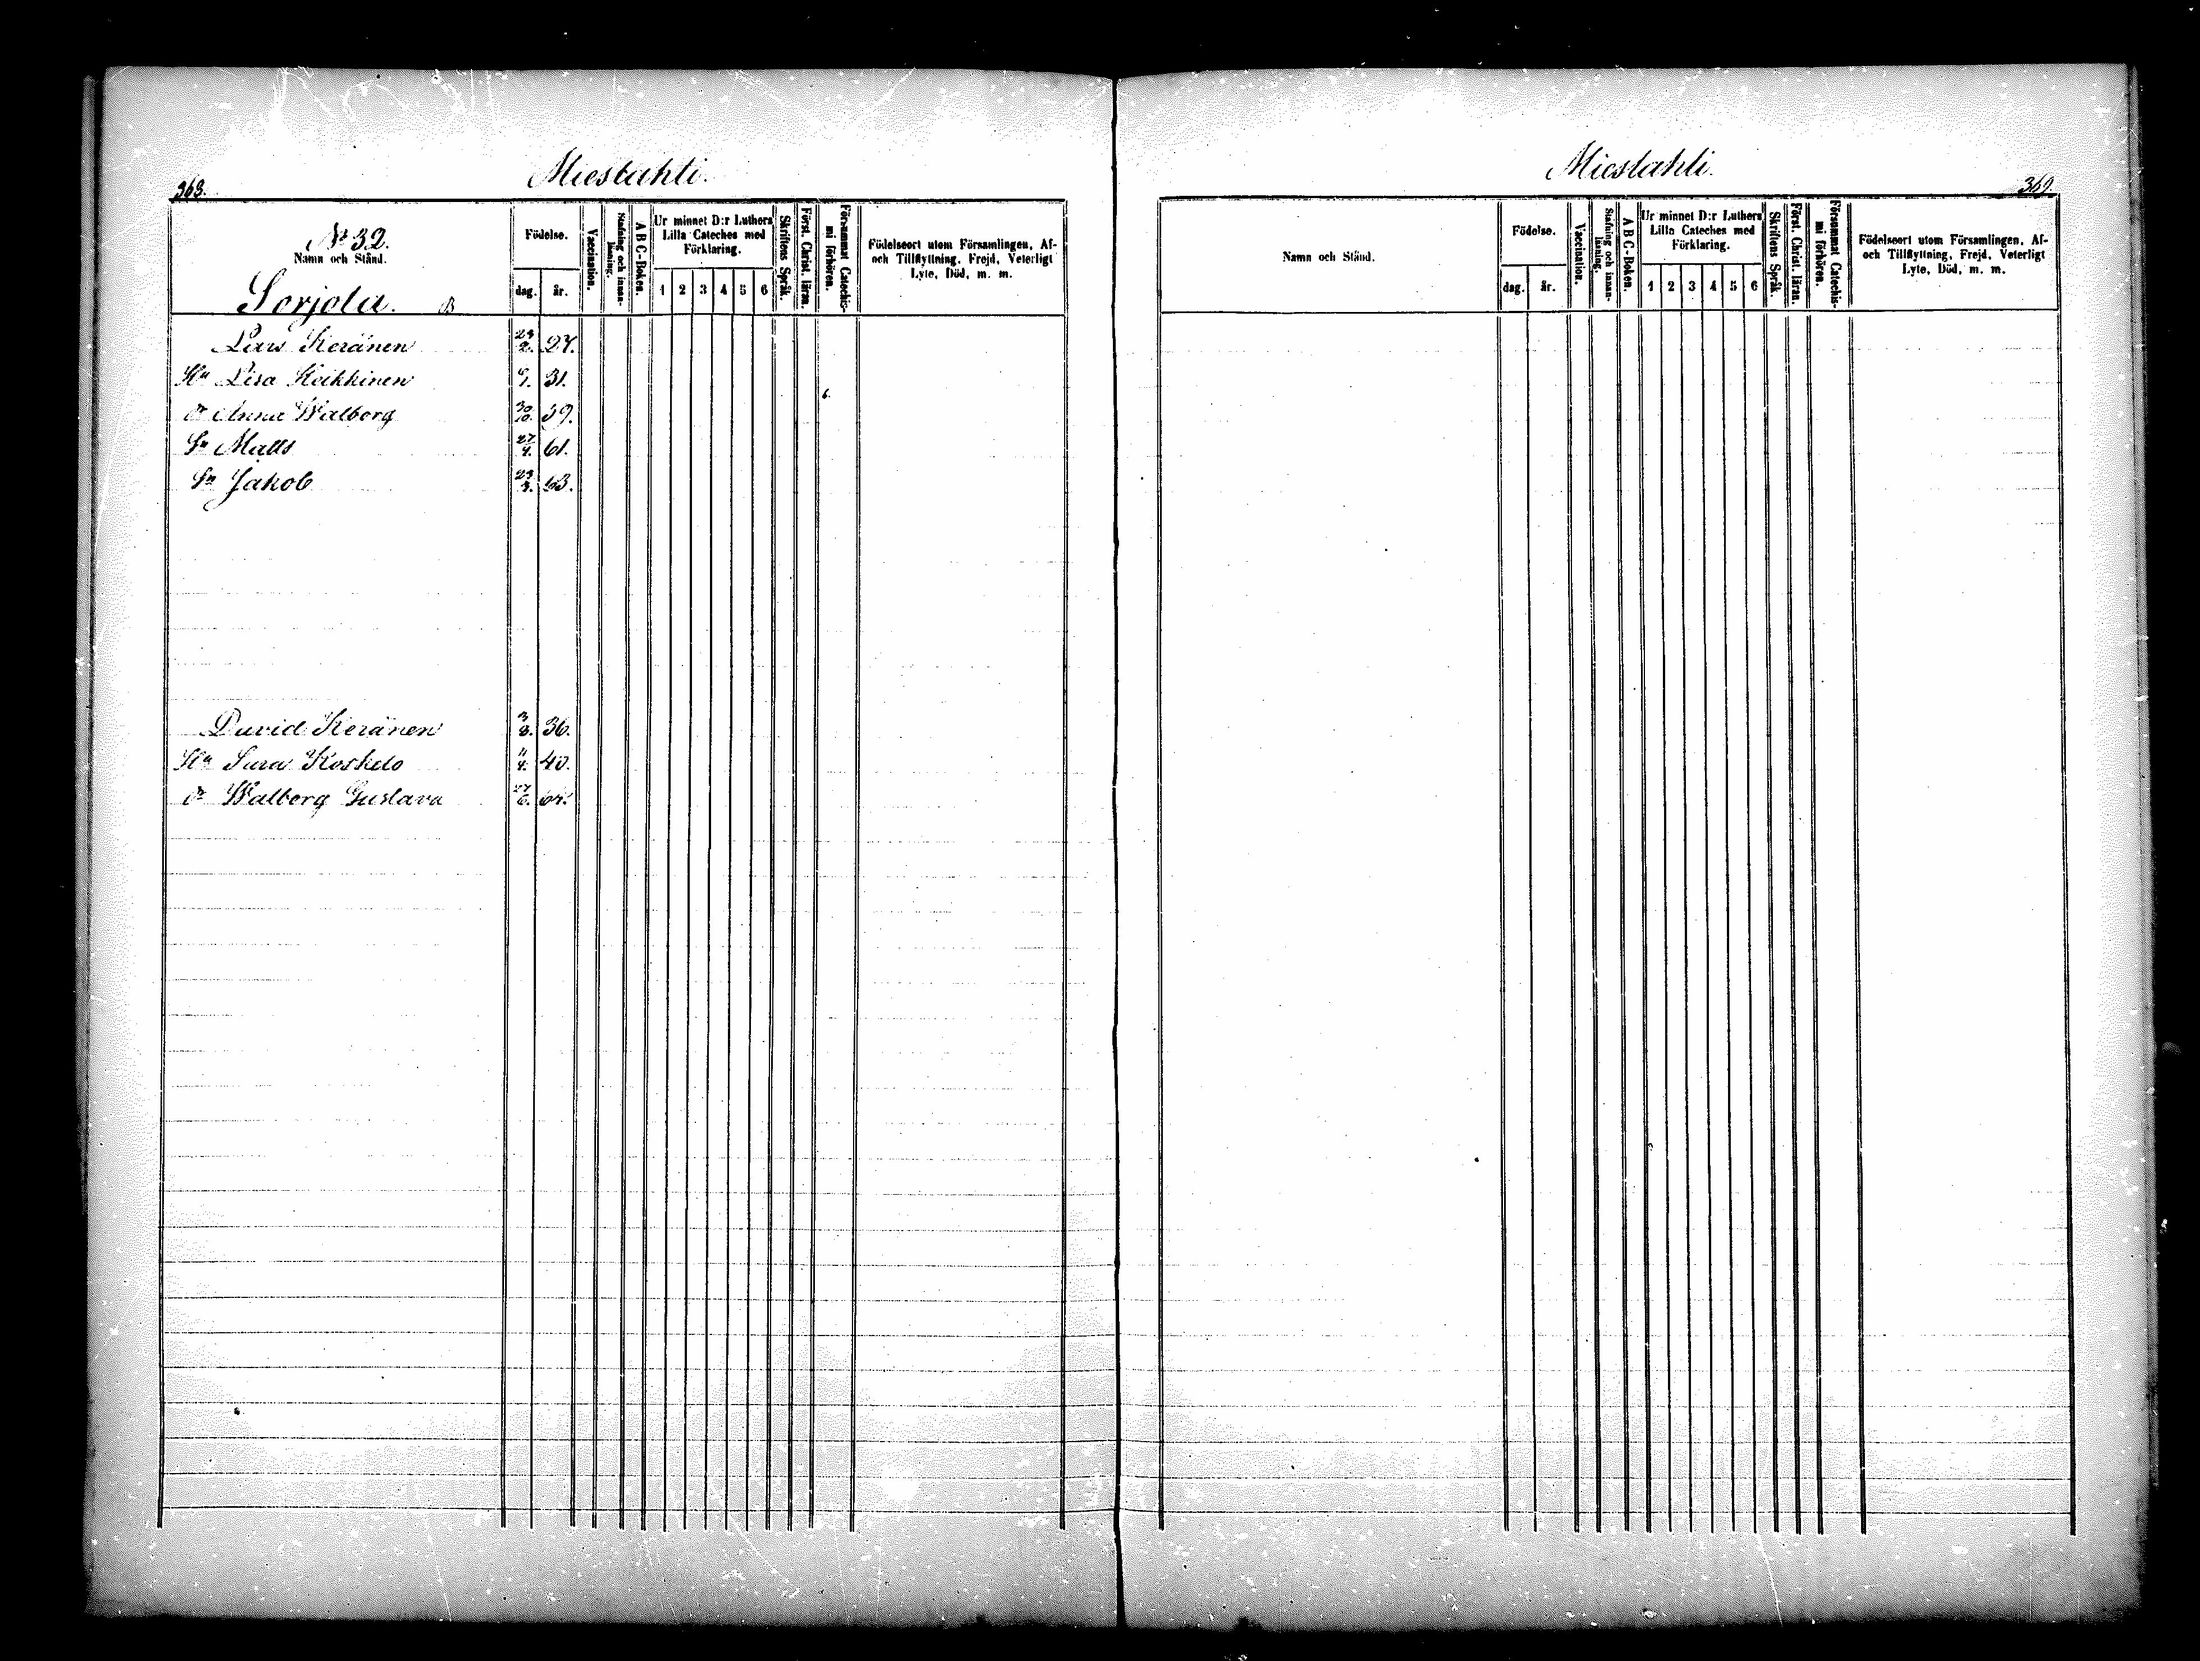 Mieslahti.
368.
No 32.
Namn och Stånd.
Sorjola. B
Födelse.
dag. år.
Vaccination.
Stafning och innan-läsning.
A B C-Boken.
Ur minnet D:r Luthers
Lilla Cateches med
Förklaring.
1 2 3 4 5 6
Skriftens Språk.
Först. Christ. läran.
Försummat Catechis-
mi förhören.
Födelseort utom Församlingen, Af-
och Tillflyttning, Frejd, Veterligt
Lyte, Död, m. m.
Lars Keränen 23/2. 27.
Hu Lisa Keikkinen 31.
dr Anna Walborg 30/10. 59.
Sn Matts 27/4. 61.
Sn Jakob 23/3. 63.
David Keränen 3/8. 36.
Hu Sara Koskelo 11/4. 40.
dr Walborg Gustava 27/6.
Mieslahti.
369.
Namn och Stånd.
Födelse.
dag. år.
Vaccination.
Stafning och innan-läsning.
A B C-Boken.
Ur minnet D:r Luthers
Lilla Cateches med
Förklaring.
1 2 3 4 5 6
Skriftens Språk.
Först. Christ. läran.
Försummat Catechis-
mi förhören.
Födelseort utom Församlingen, Af-
och Tillflyttning, Frejd, Veterligt
Lyte, Död, m. m.